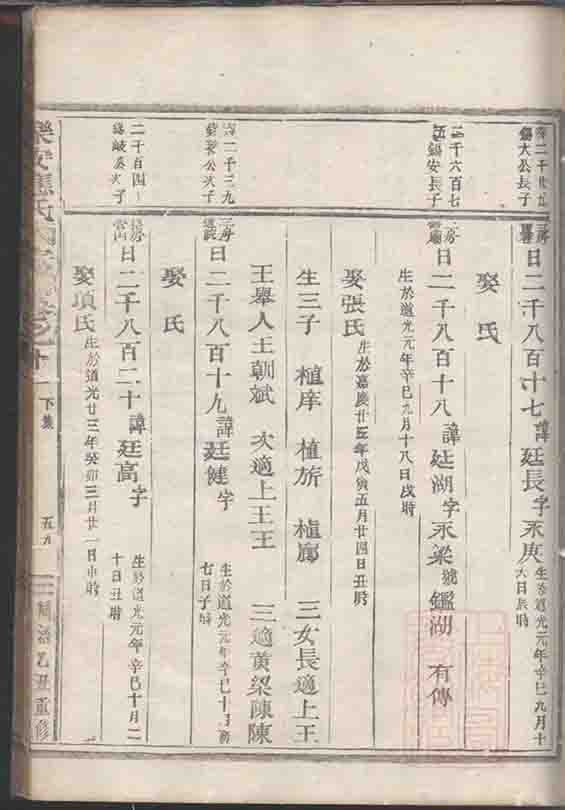 二千廿
錫大公長子
三房
日二千八百十七諱廷長字永庚
生於道光元年辛巳九月十
六日辰時
娶 氏
二千六百七
錫安長子
三房
日二千八百十八諱廷湖字永梁號鑑湖 有傳
生於道光元年辛巳九月十八日戌時
娶張氏生於嘉慶廿三年戊寅五月廿四日丑時
生三子 植庠 植旂 植廊 三女長適上王
王舉人王朝斌 次適上王王 三適黃梁陳陳
二千三九
公次子
三房
日二千八百十九諱廷健字
生於道光元年辛巳十月初
七日子時
娶 氏
二千百四
岐奏次子
房
日二千八百二十諱廷高字
生於道光元年辛巳十月二
十日丑時
娶項氏生於道光廿三年癸卯三月廿一日申時
樂安應氏宗 卷之十一 下集 五九 三 同治乙丑重修